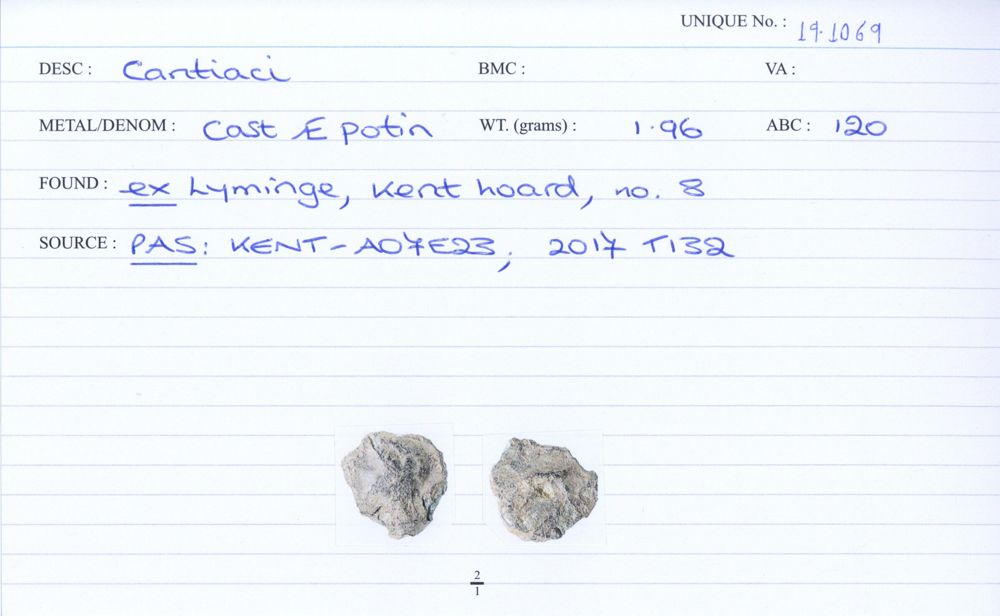 UNIQUE No. : 19.1069
DESC : Cantiaci BMC : VA :
METAL/DENOM : Cast Æ potin WT. (grams) : 1.96 ABC : 120
FOUND : ex Lyminge, Kent hoard, no. 8
SOURCE : PAS: KENT-A07E23, 2017 T132
2
1